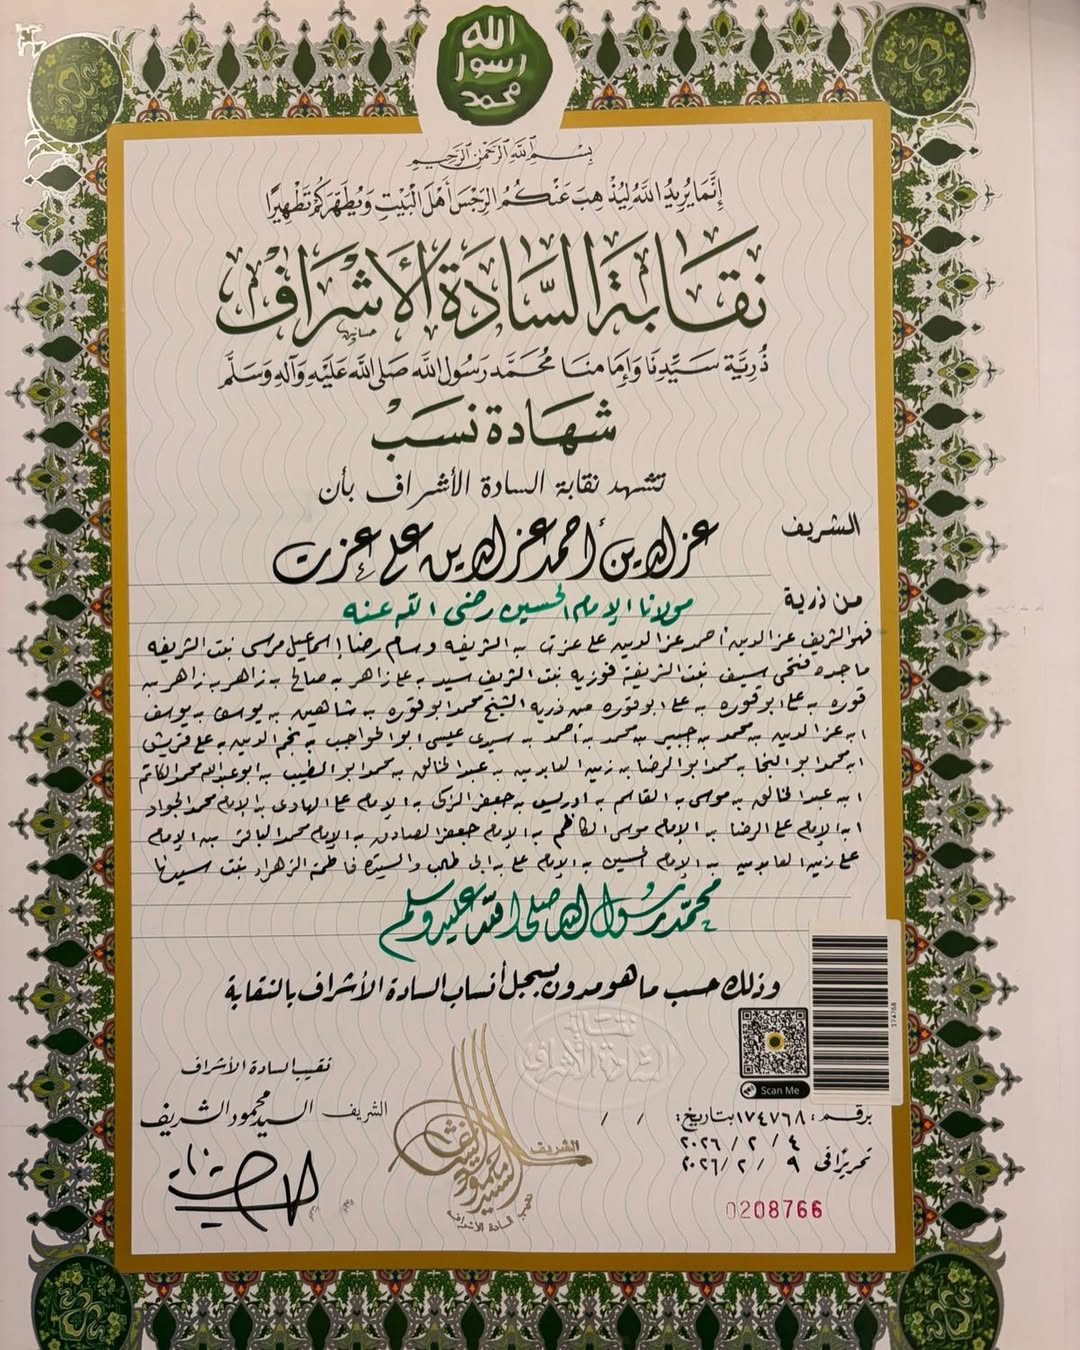 الله
رسول
محمد
بِسْمِ اللَّهِ الرَّحْمَٰنِ الرَّحِيمِ
إِنَّمَا يُرِيدُ اللَّهُ لِيُذْهِبَ عَنْكُمُ الرِّجْسَ أَهْلَ الْبَيْتِ وَيُطَهِّرَكُمْ تَطْهِيرًا
نقابة السَّادَة الأَشْرَاف
ذُرِيَّة سَيِّدِنَا وَإِمَامِنَا مُحَمَّد رَسُول اللَّه صَلَّى اللَّه عَلَيْهِ وَآلِهِ وَسَلَّم
شهادة نسب
تشهد نقابة السادة الأشراف بأن
الشريف عز الدين أحمد عز الدين على عزت
من ذرية مولانا الإمام الحسين رضى الله عنه
فهو الشريف عز الدين أحمد عز الدين على عزت بن الشريفه وسام رضا إسماعيل مرسى بنت الشريفه
ماجده فتحى سيف بنت الشريفة فوزيه بنت الشريف سيد بن على زاهر بن صالح بن زاهر بن زاهر بن
قوره بن على ابو قوره بن على ابو قوره من ذريه الشيخ محمد ابو قوره بن شاهين بن يوسف بن يوسف
ابن عز الدين بن محمد بن جبير بن محمد بن أحمد بن سيدى عيسى ابو الحواجب بن نجم الدين بن على قريش
ابن محمد ابو النجا بن محمد ابو الرضا بن زين العابدين بن عبد الخالق بن محمد ابو الطيب بن ابو عبد الله محمد الكاتم
ابن عبد الخالق بن موسى بن القاسم بن ادريس بن جعفر الزكى بن الإمام على الهادى بن الإمام محمد الجواد
ابن الإمام على الرضا بن الإمام موسى الكاظم بن الإمام جعفر الصادق بن الإمام محمد الباقر بن الإمام
على زين العابدين بن الإمام الحسين بن الإمام على بن ابى طالب والسيدة فاطمة الزهراء بنت سيدنا
محمد رسول الله صلى الله عليه وسلم
وذلك حسب ما هو مدون بسجل أنساب السادة الأشراف بالنقابة
نقابة
السادة الأشراف
174768
Scan Me
نقيب السادة الأشراف
الشريف السيد محمود الشريف
الشريف
السيد محمود الشريف
نقيب السادة الأشراف
برقم: ١٧٤٧٦٨ بتاريخ: / /
٤ / ٢ / ٢٠٢٦
تحريرًا فى ٩ / ٢ / ٢٠٢٦
0208766